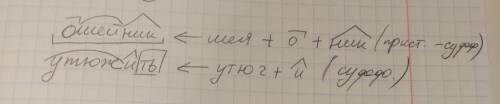 ошейник ← шея + о + ник (прист. -суффф)
утюжить ← утюг + и (суффф.)